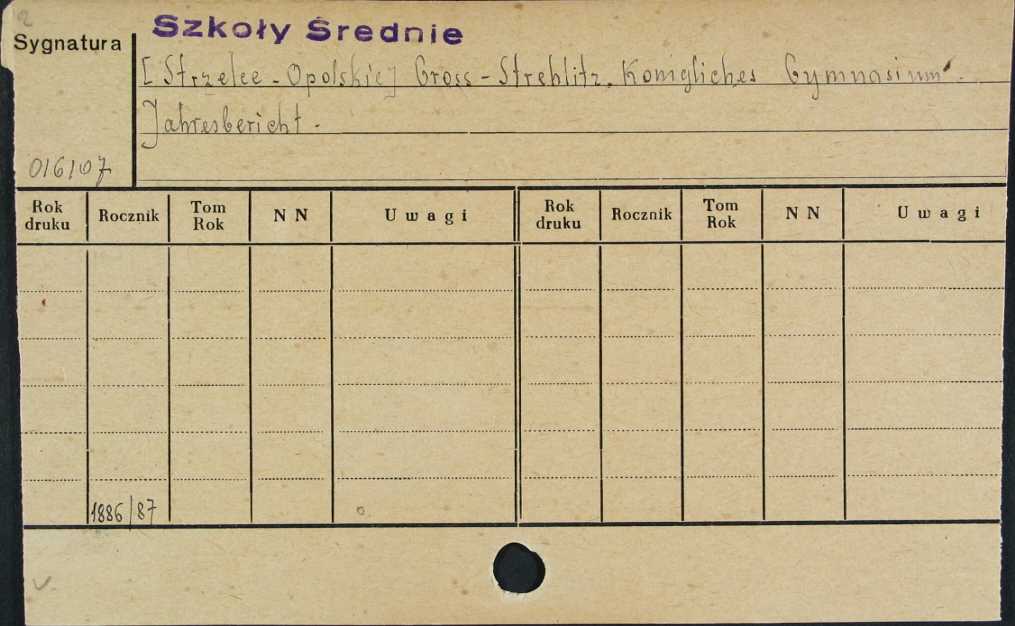 2
Szkoły Średnie
Sygnatura
[Strzelce-Opolskie] Gross-Strehlitz. Königliches Gymnasium.
Jahresbericht.
016107
Rok druku Rocznik Tom Rok N N Uwagi Rok druku Rocznik Tom Rok N N Uwagi
1886/87